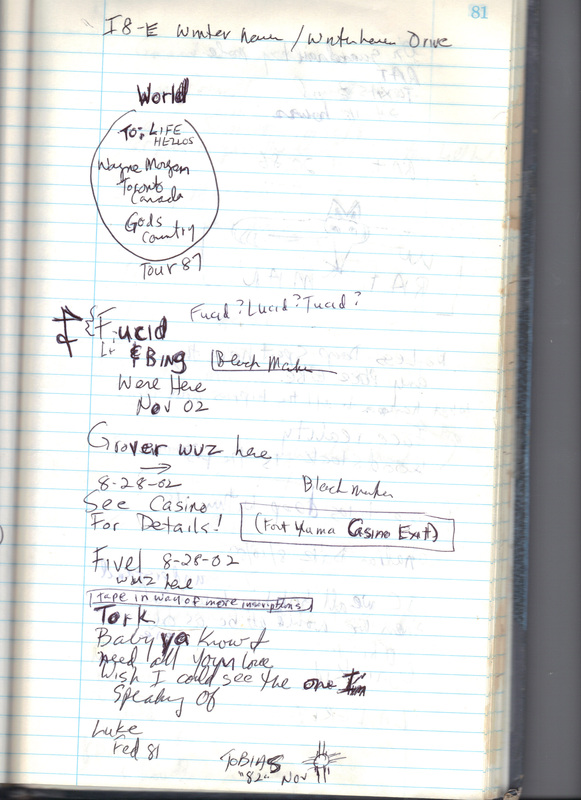 81
I8-E Winter haven / Winterhaven Drive
World
To: LIFE
HELLOS
Wayne Morgan
Toronto
Canada
Gods
Country
Tour 87
Fucid? Lucid? Tucid?
Fucid
L
& BING Black Marker
Were Here
Nov 02
Grover wuz here
8-28-02
Black marker
See Casino
For Details!
(Fort Yuma Casino Exit)
Fivel 8-28-02
wuz here
tape in way of more inscriptions
Tork
Baby ya Know I
need all your love
Wish I could see the one I'm
Speaking of
Luke
Feb 81
TOBIAS
"82" Nov